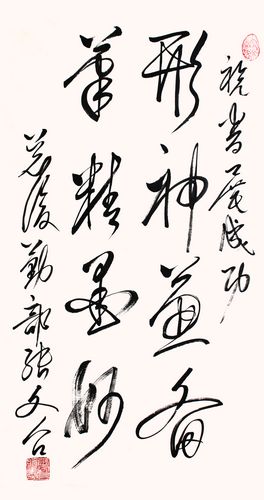 祝书展成功
形神兼备
笔精墨妙
总后勤部张文台